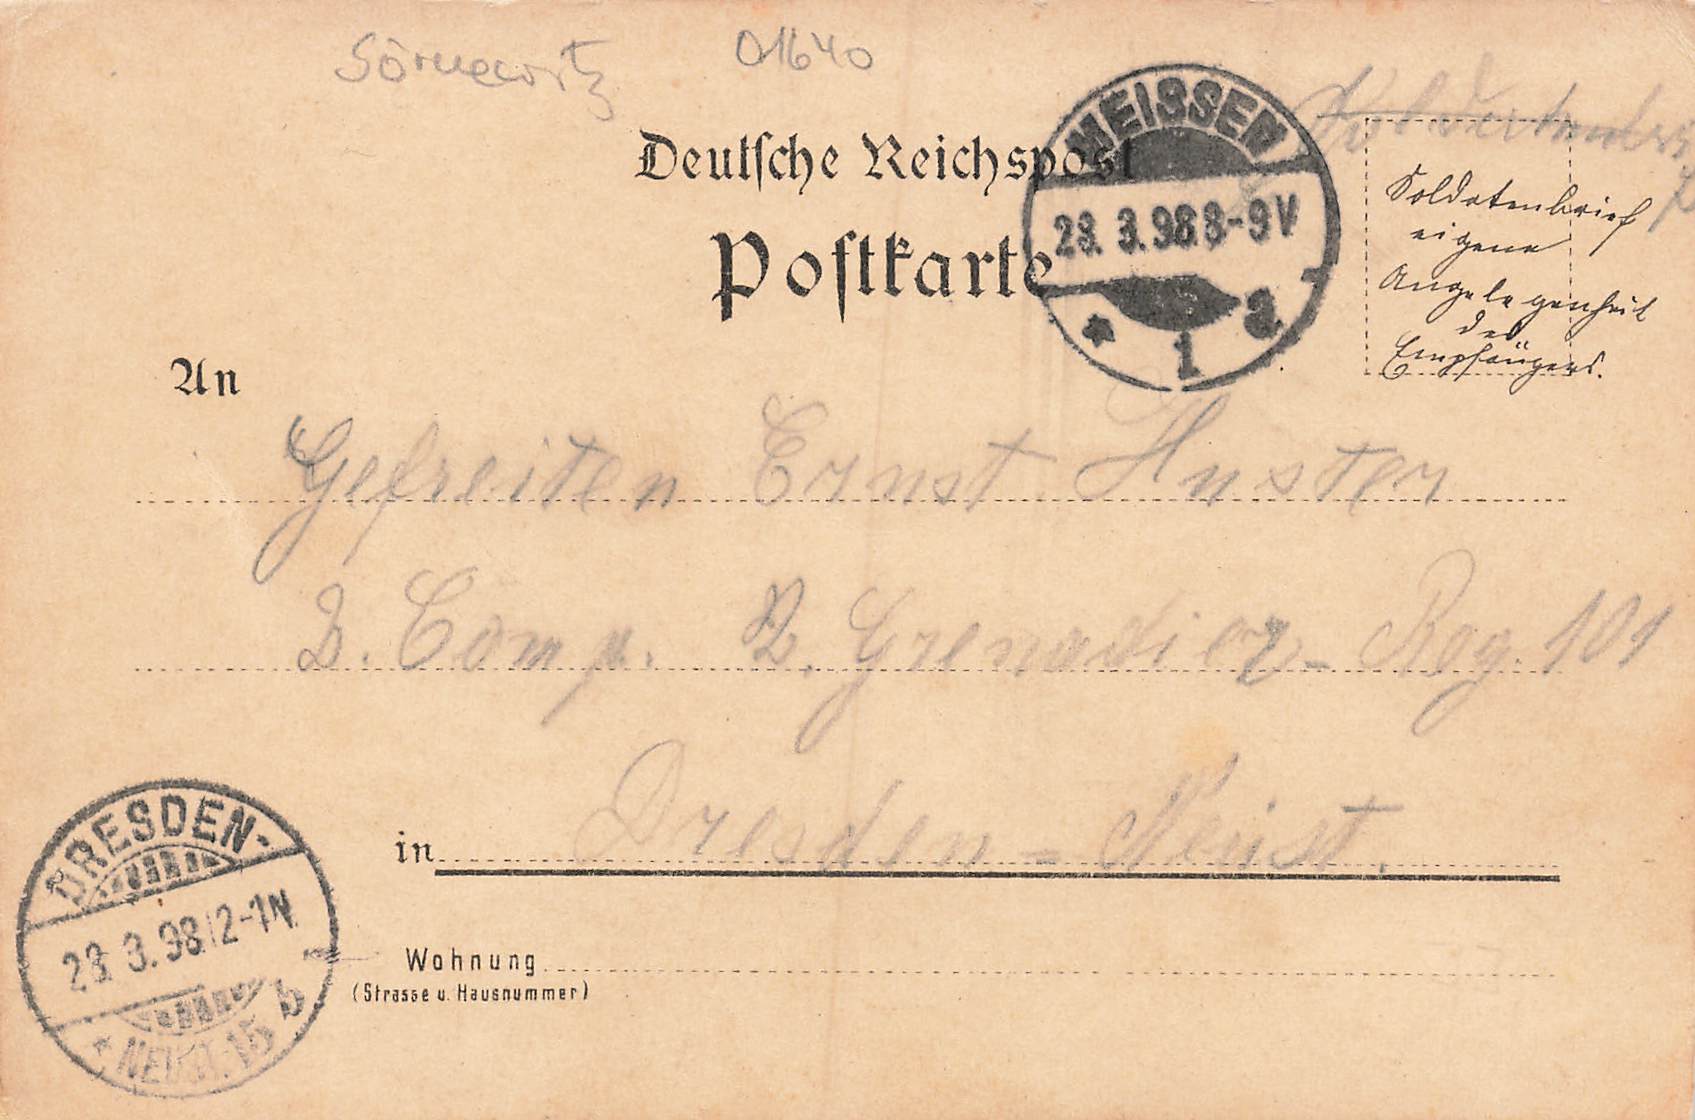 Sörnewitz 01640
Deutsche Reichspost
Postkarte
MEISSEN
23. 3. 98 8-9V
* 1 a
Soldatenbrief
eigene
Angelegenheit
des
Empfängers.
An
Gefreiten Ernst Huster
2. Comp. 2. Grenadier-Reg. 101
in Dresden-Neust.
DRESDEN-
23. 3. 98. 12-1N
* NEUST. 15 b
Wohnung
(Strasse u. Hausnummer)